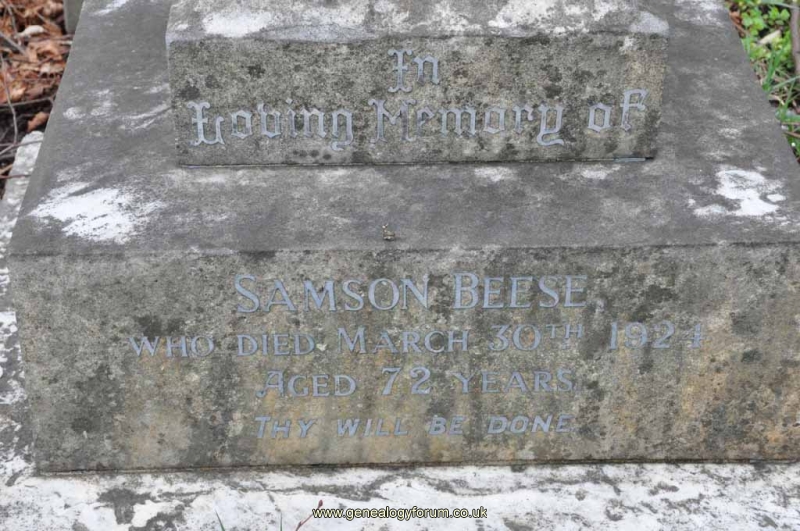 In
Loving Memory of
SAMSON BEESE,
WHO DIED MARCH 30TH 1924
AGED 72 YEARS.
THY WILL BE DONE.
www.genealogyforum.co.uk